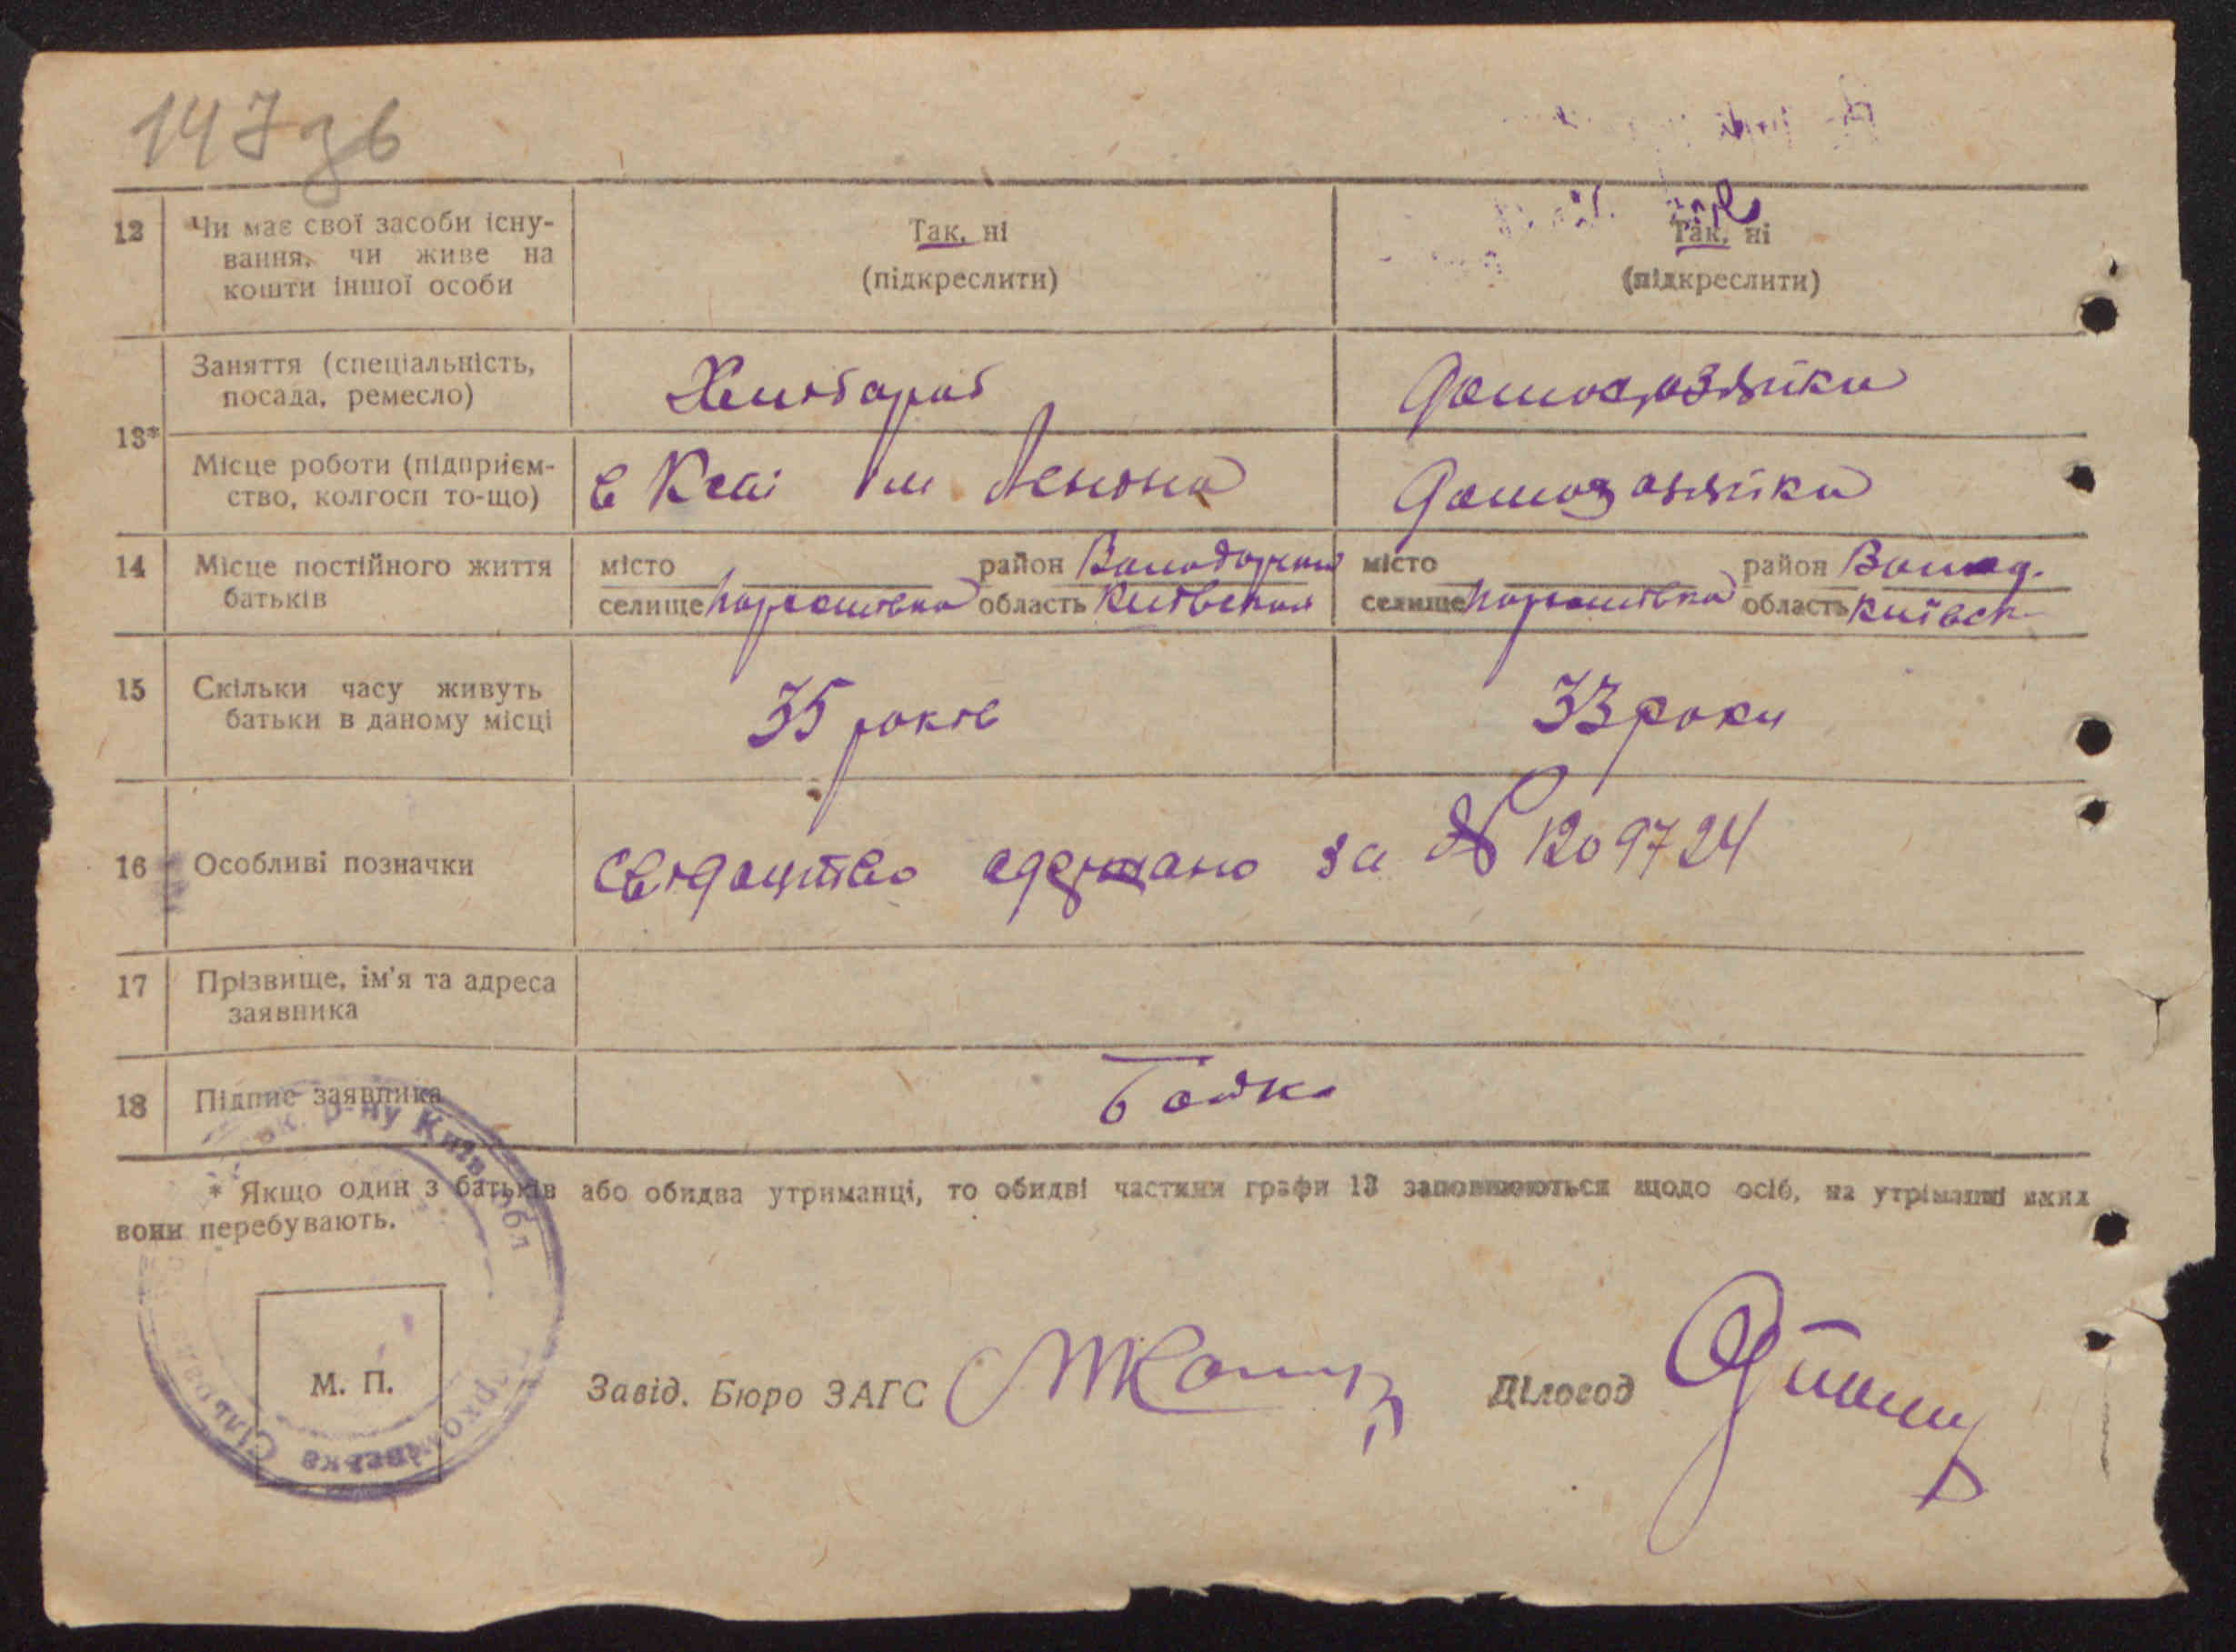 147 зв
12 Чи має свої засоби існу-
вання, чи живе на
кошти іншої особи
Так, ні
(підкреслити)
Так, ні
(підкреслити)
13*
Заняття (спеціальність,
посада, ремесло)
Хлібороб
Домохозяйка
Місце роботи (підприєм-
ство, колгосп то-що)
в Колі ім Леніна
Домохозяйка
14 Місце постійного життя
батьків
місто район Володарский
селище Пархомівка область Київская
місто район Волод.
селище Пархомівка область Київск
15 Скільки часу живуть
батьки в даному місці
35 років
33 роки
16 Особливі позначки
Свідоцтво одержано за № 1209724
17 Прізвище, ім'я та адреса
заявника
18 Підпис заявника
Бойко
* Якщо один з батьків або обидва утриманці, то обидві частини графи 13 заповнюються щодо осіб, на утріманні яких
вони перебувають.
р-ну Київ обл
Пархомівська Сільрада
М. П.
Завід. Бюро ЗАГС
Діловод